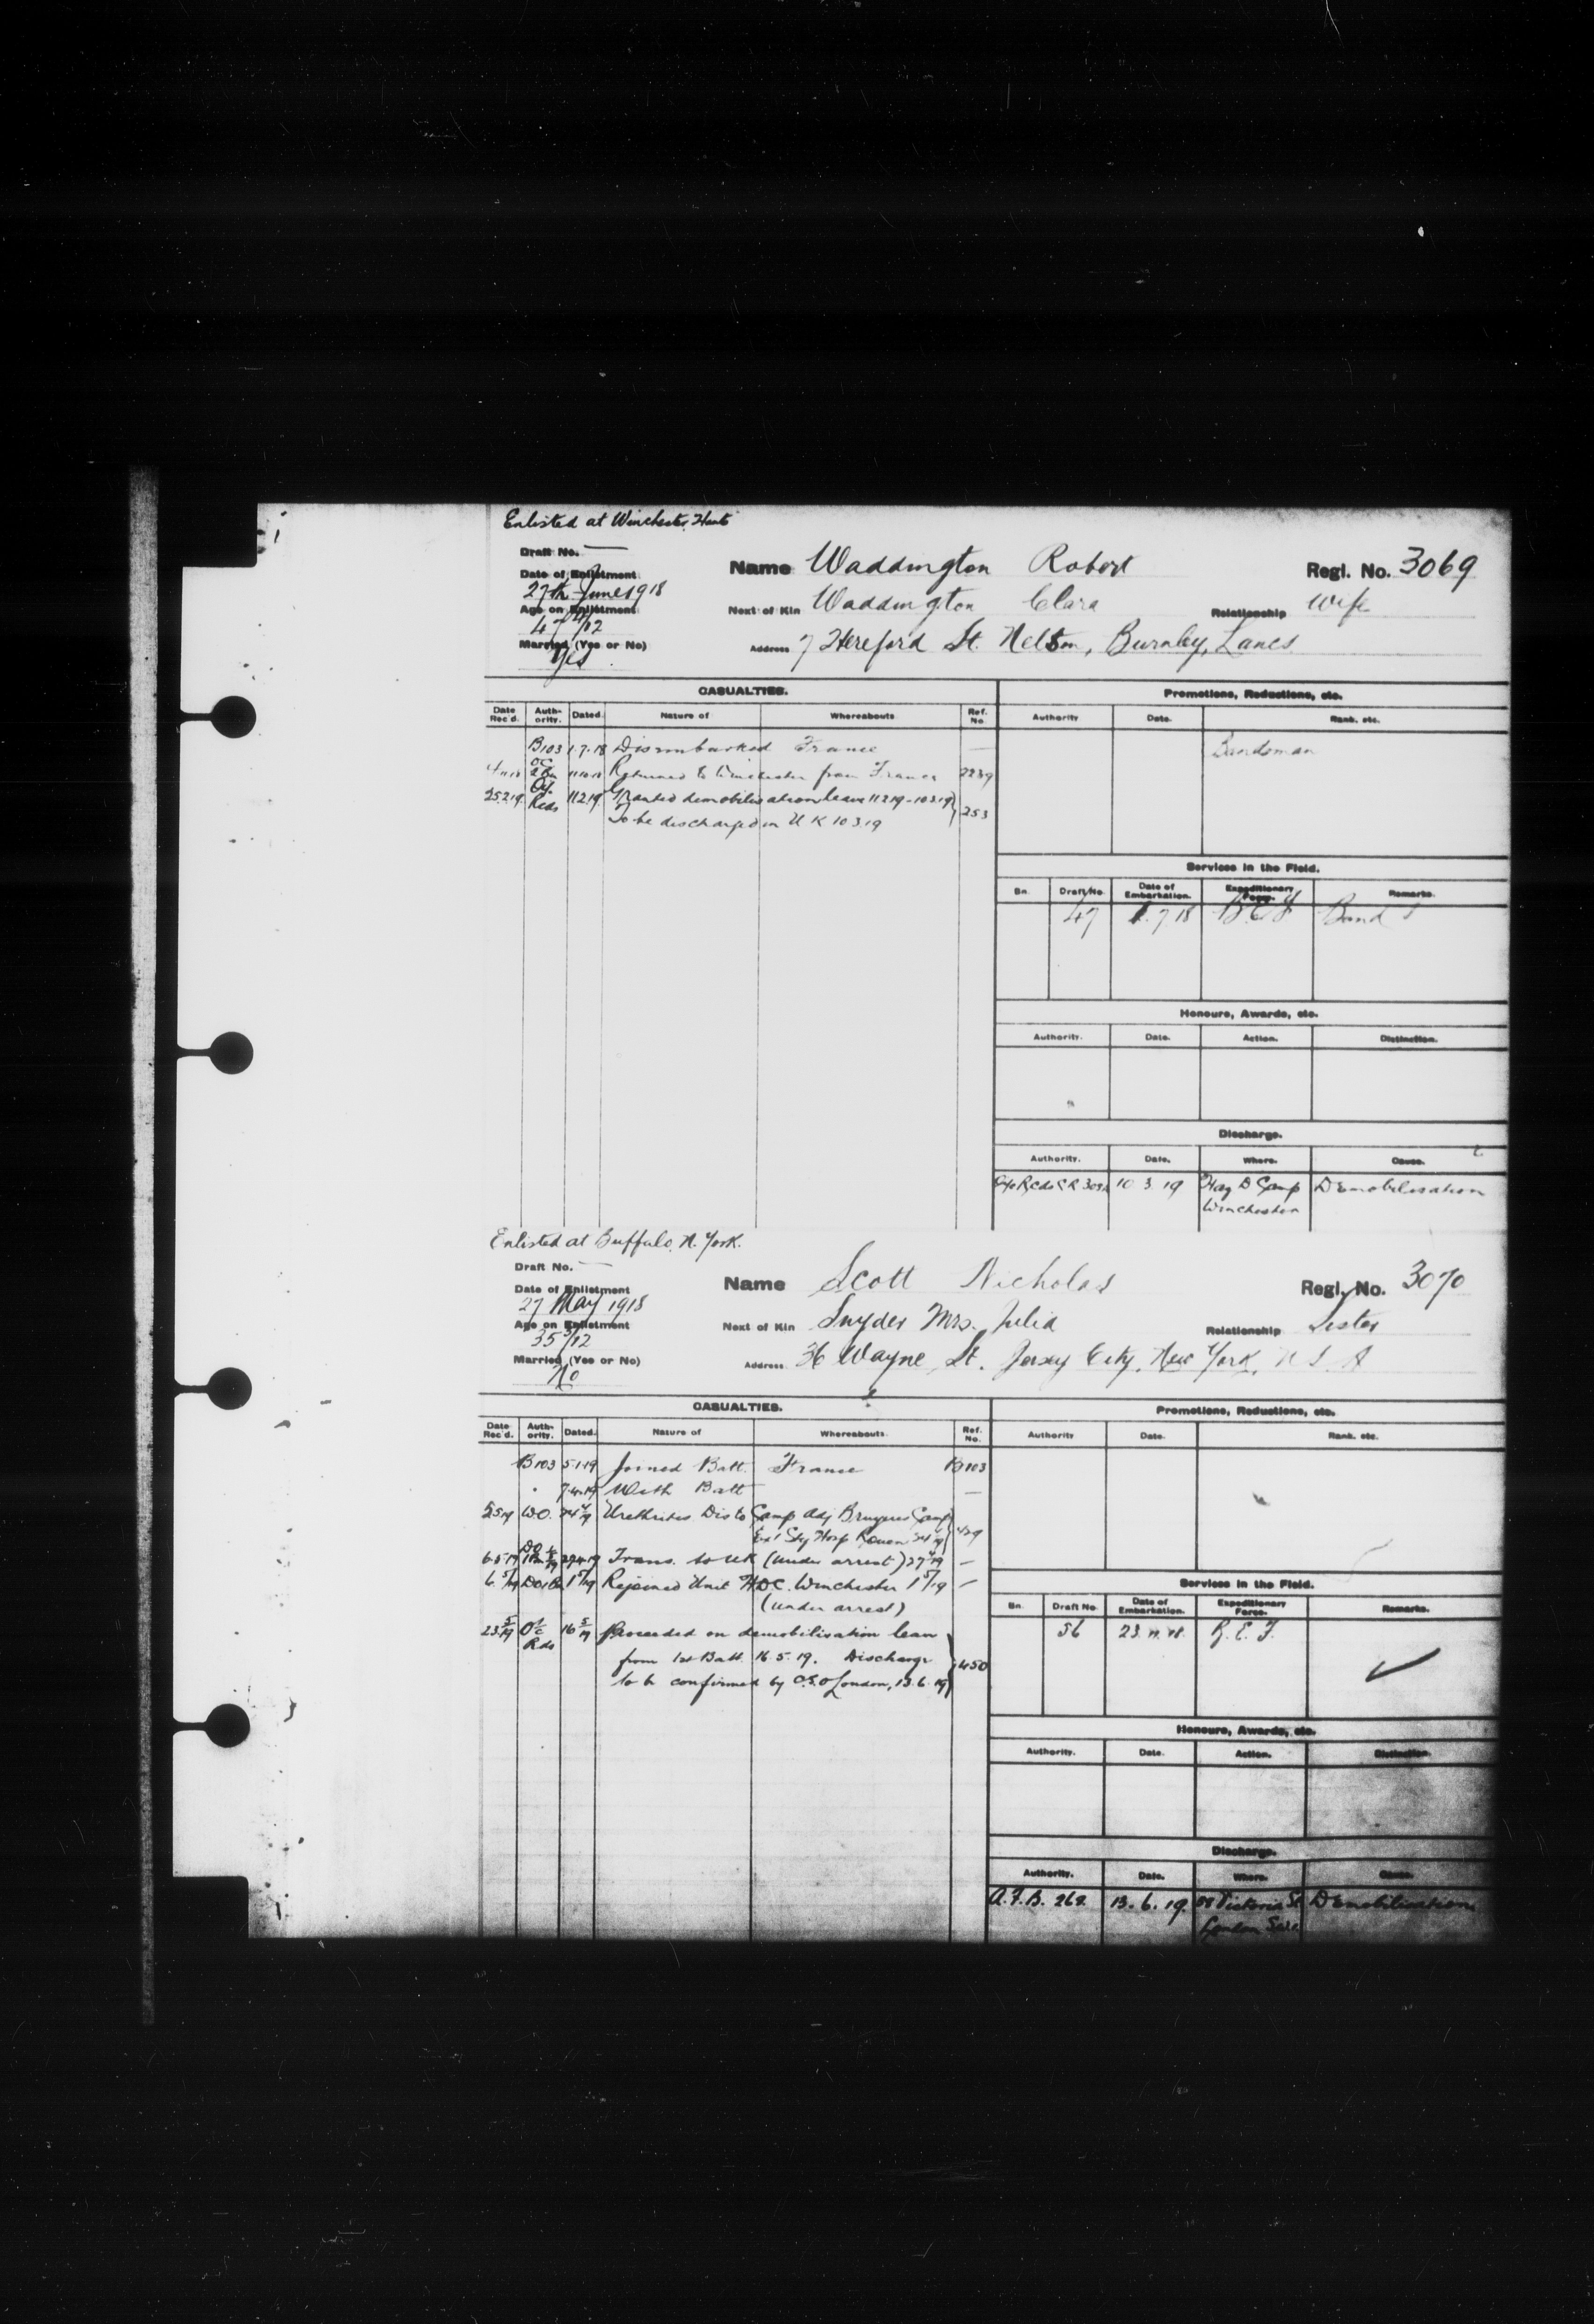 Enlisted at Winchester, Hants
Draft No. —
Date of Enlistment
27th June 1918
Age on Enlistment
47 /12
Married (Yes or No)
Yes
Name Waddington Robert
Regl. No. 3069
Next of Kin Waddington Clara
Relationship Wife
Address 7 Hereford St. Nelson, Burnley, Lancs
CASUALTIES.
Date Rec'd. Auth- ority. Dated. Nature of Whereabouts Ref. No.
B103 1.7.18 Disembarked France —
OC 2 Bn 11.10.18 Returned to Winchester from France 2239
25.2.19 Rcds 11.2.19 Granted demobilisation leave 11.2.19-10.3.19
To be discharged in U K 10.3.19 253
Promotions, Reductions, etc.
Authority Date. Rank. etc.
Bandsman
Services in the Field.
Bn. Draft No. Date of Embarkation. Expeditionary Force. Remarks.
47 1.7.18 B.E.F. Band
Honours, Awards, etc.
Authority. Date. Action. Distinction.
Discharge.
Authority. Date. Where. Cause.
10.3.19 Hag D Camp Demobilisation
Winchester
Enlisted at Buffalo, N. York.
Draft No. —
Date of Enlistment
27 May 1918
Age on Enlistment
35 /12
Married (Yes or No)
No
Name Scott Nicholas
Regl. No. 3070
Next of Kin Snyder Mrs. Julia
Relationship Sister
Address 36 Wayne St. Jersey City, New York, U S. A
CASUALTIES.
Date Rec'd. Auth- ority. Dated. Nature of Whereabouts Ref. No.
B103 5.1.19 Joined Batt. France B103
7.4.19 With Batt —
W.O. Urethritis Dis to Camp Adj Bruyeres Camp
Sty Hosp Rouen 429
6.5.19 27.4.19 Trans. to UK (under arrest) 27 4/19 —
6. 5/19 1 5/19 Rejoined Unit HDC. Winchester 1 5/19 —
(under arrest)
23 5/19 O/c Rds 16 5/19 Proceeded on demobilisation leave
from 1st Batt. 16.5.19. Discharge 450
to be confirmed by C.S.O London, 13.6.19
Promotions, Reductions, etc.
Authority Date. Rank. etc.
Services in the Field.
Bn. Draft No. Date of Embarkation. Expeditionary Force. Remarks.
56 23.11.18. B.E.F.
Honours, Awards, etc.
Authority. Date. Action. Distinction.
Discharge.
Authority. Date. Where. Cause.
A.F.B. 268. 13.6.19. 88 Victoria St Demobilisation
London